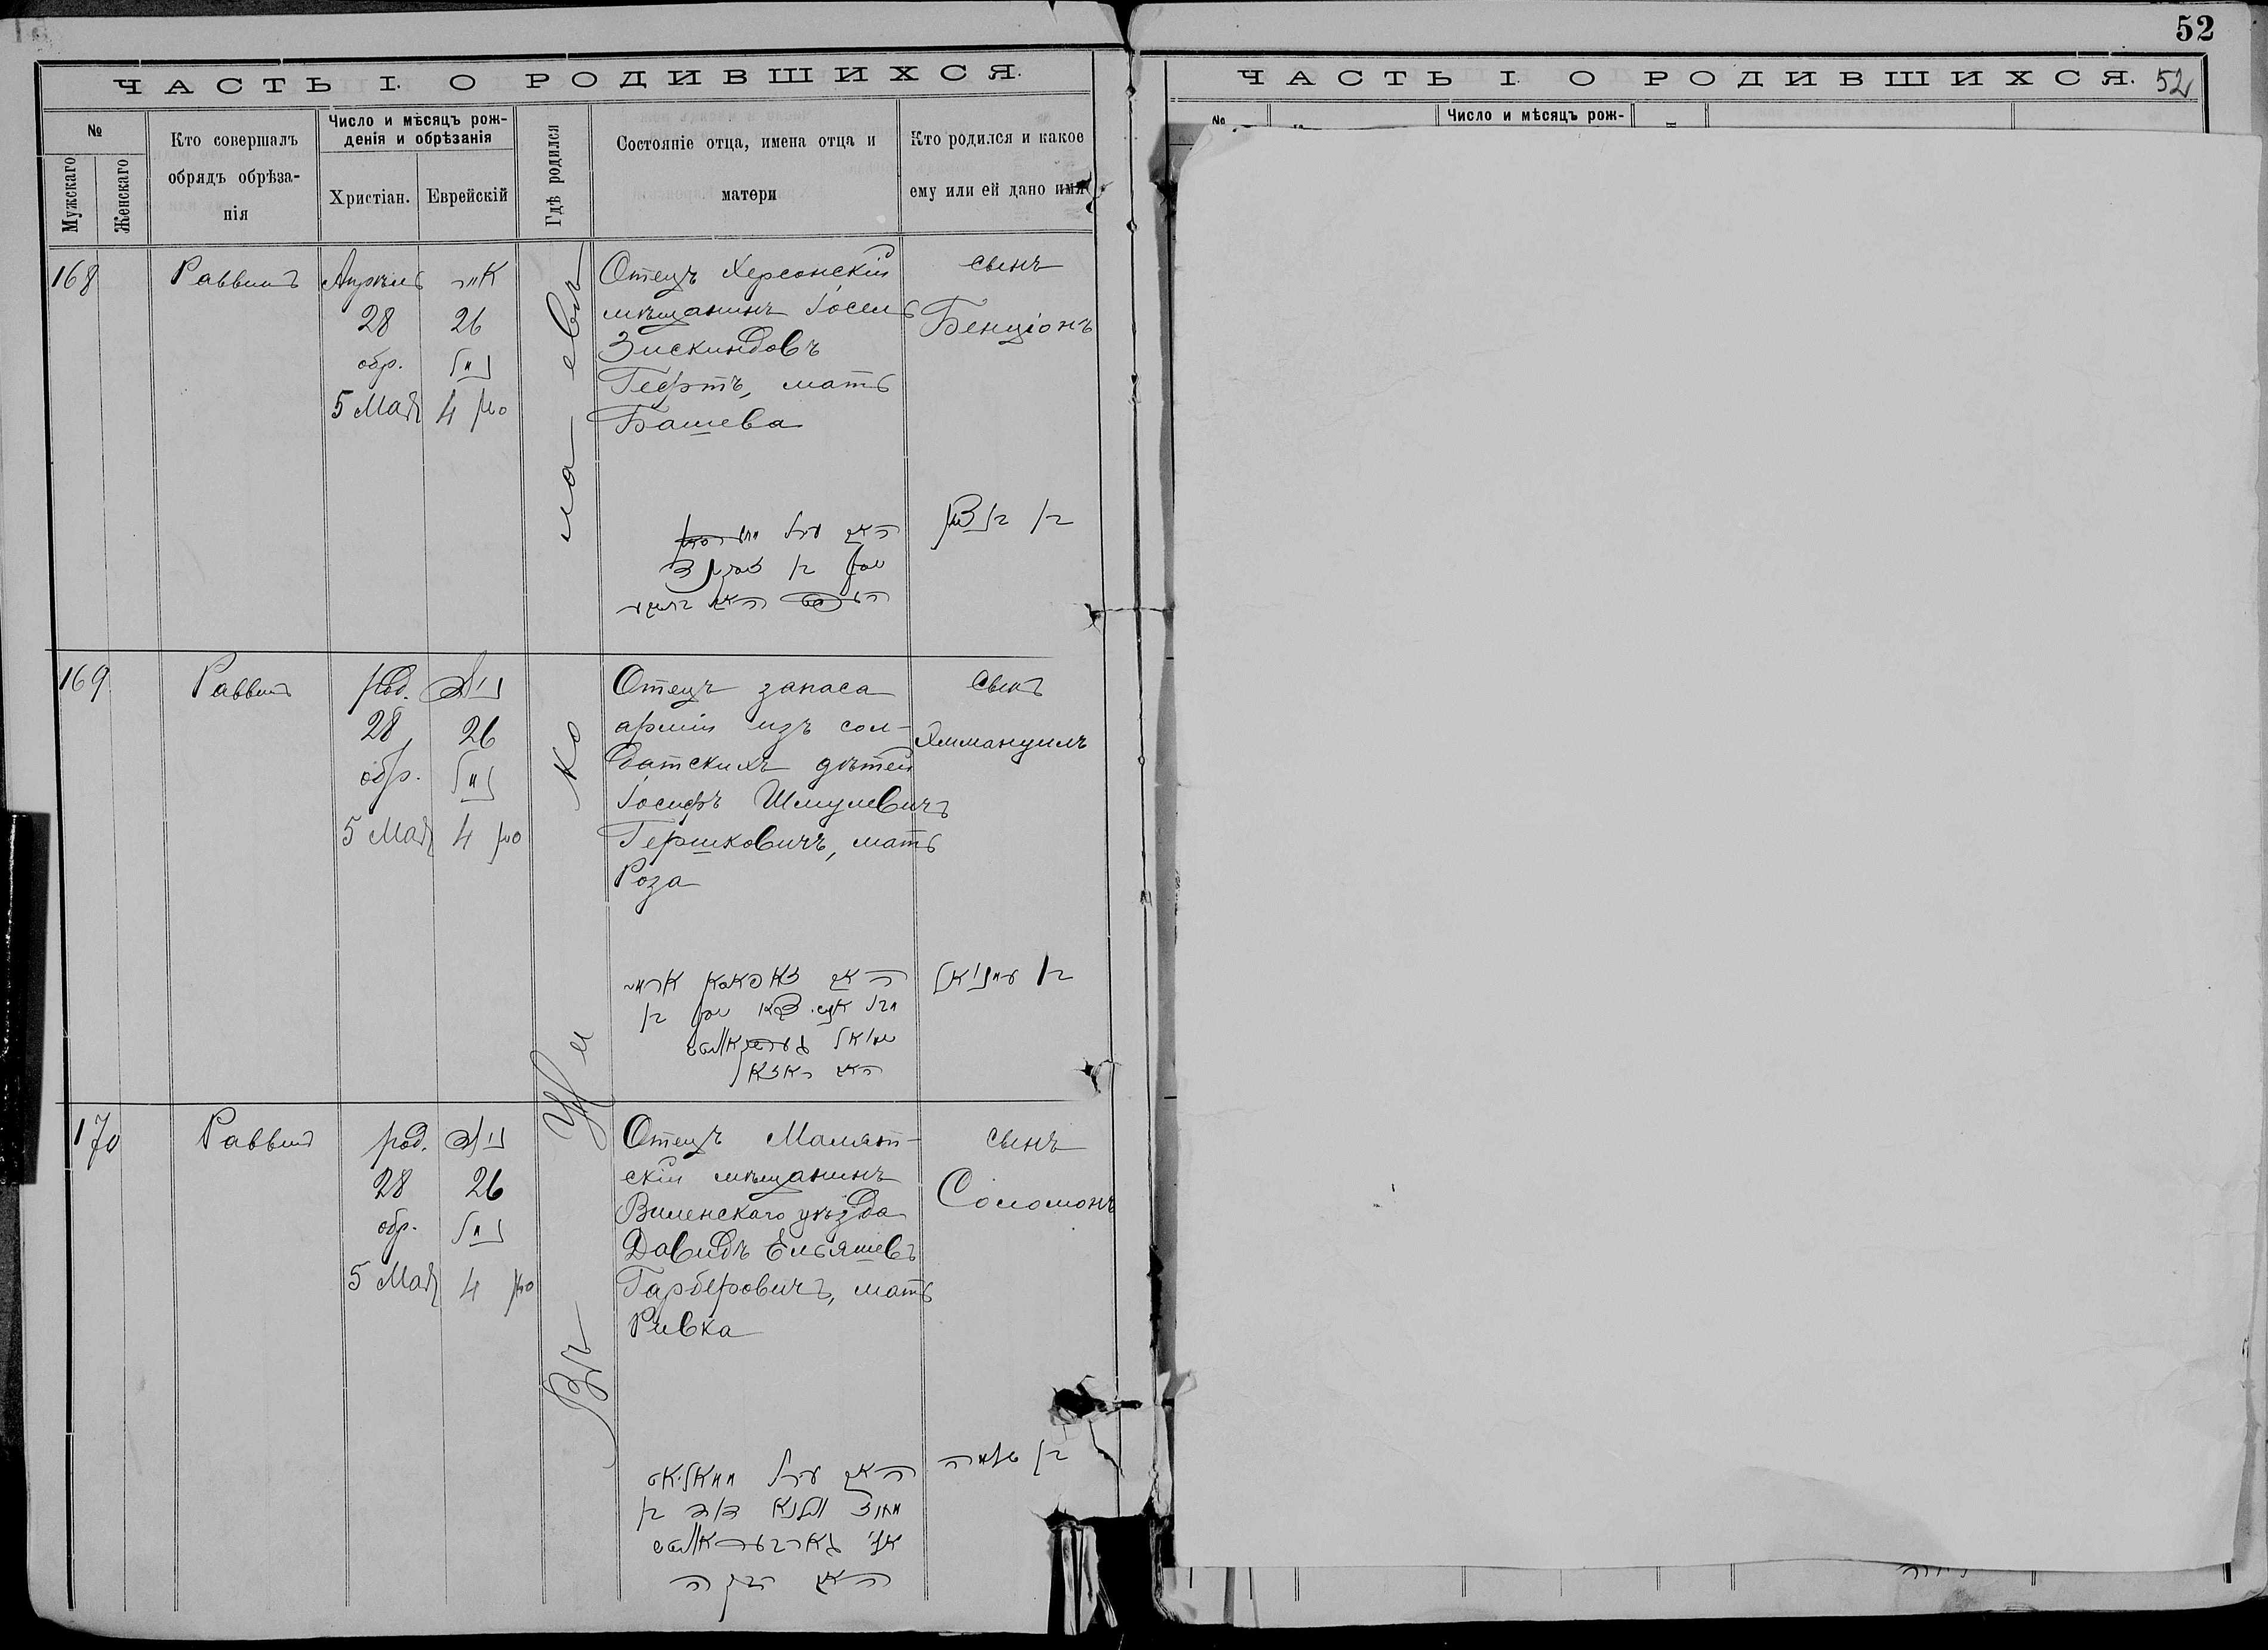 52
ЧАСТЬ I. О РОДИВШИХСЯ.
№
Мужскаго
Женскаго
Кто совершалъ
обрядъ обрѣза-
нія
Число и мѣсяцъ рож-
денія и обрѣзанія
Христіан.
Еврейскій
Гдѣ родился
Состояніе отца, имена отца и
матери
Кто родился и какое
ему или ей дано имя
168
Раввинъ
Апрѣль
28
обр.
5 Мая
26
ניסן
4
Отецъ Херсонскій
мѣщанинъ Іосель
Зискиндовъ
Гефтъ, мать
Башева
сынъ
Бенціонъ
בן בן ציון
יוסף בן זוסקינד
169
Раввинъ
род.
28
обр.
5 Мая
26
4
Отецъ запаса
арміи изъ сол-
датскихъ дѣтей
Іосифъ Шмулевичъ
Гершковичъ, мать
Роза
сынъ
Эммануилъ
בן עמנואל
האם ראזא
170
Раввинъ
род.
28
обр.
5 Мая
26
4
Отецъ Малят-
скій мѣщанинъ
Виленскаго уѣзда
Давидъ Ельяшевъ
Гарберовичъ, мать
Ривка
сынъ
Соломонъ
בן שלמה
האם רבקה
Въ Николаевѣ
ЧАСТЬ I. О РОДИВШИХСЯ.
52
№
Число и мѣсяцъ рож-